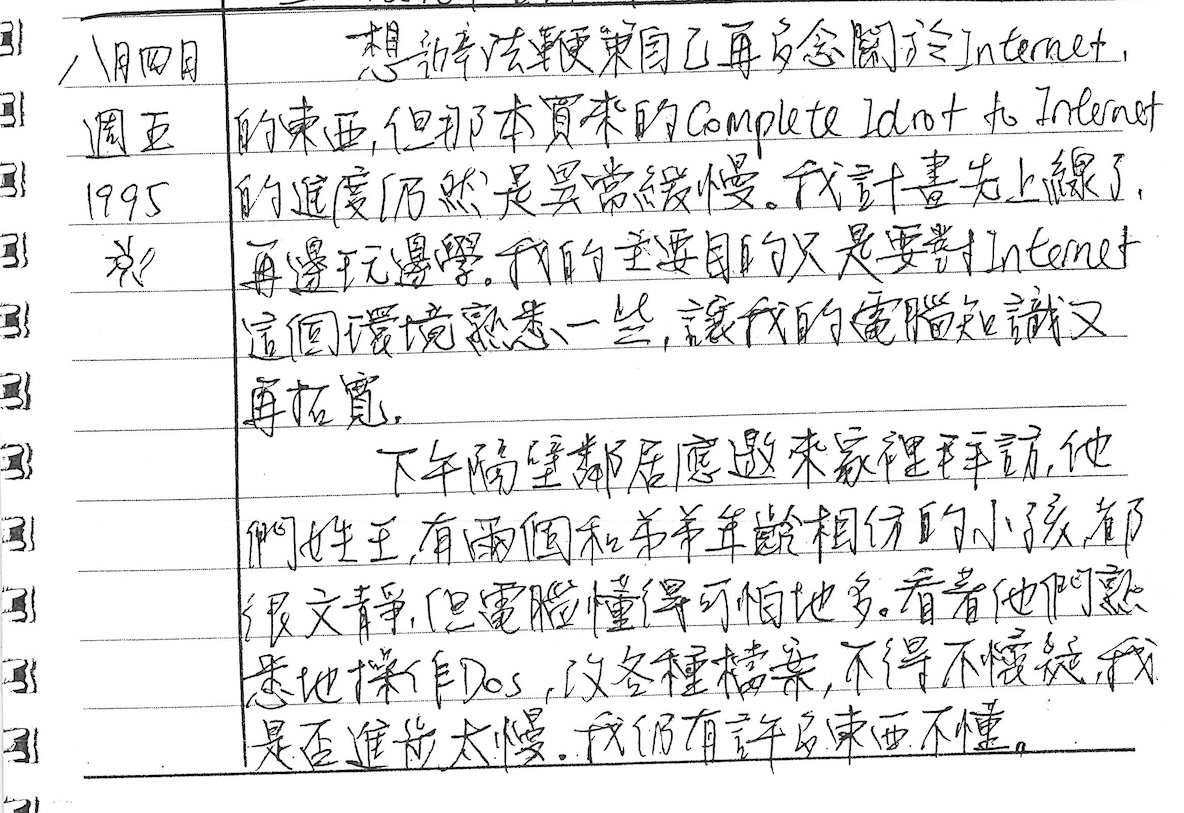 八月四日
週五
1995
想辦法鞭策自己再多念關於Internet,
的東西,但那本買來的Complete Idiot to Internet
的進度仍然是異常緩慢。我計畫先上線了,
再邊玩邊學。我的主要目的只是要對Internet
這個環境熟悉一些,讓我的電腦知識又
再拓寬.
下午隔壁鄰居應邀來家裡拜訪,他
們姓王,有兩個和弟弟年齡相仿的小孩,都
很文靜,但電腦懂得可怕地多。看著他們熟
悉地操作Dos,改各種檔案,不得不懷疑,我
是否進步太慢.我仍有許多東西不懂。